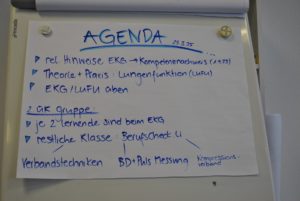 AGENDA
rel. Hinweise EKG → Kompetenznachweis
Theorie + Praxis: Lungenfunktion (LUFU)
EKG / LUFU üben
2. GK Gruppe:
je 2 Lernende sind beim EKG
restliche Klasse: Berufschat Li
Verbandstechniken BD + Puls Messung Kompressions-
verband